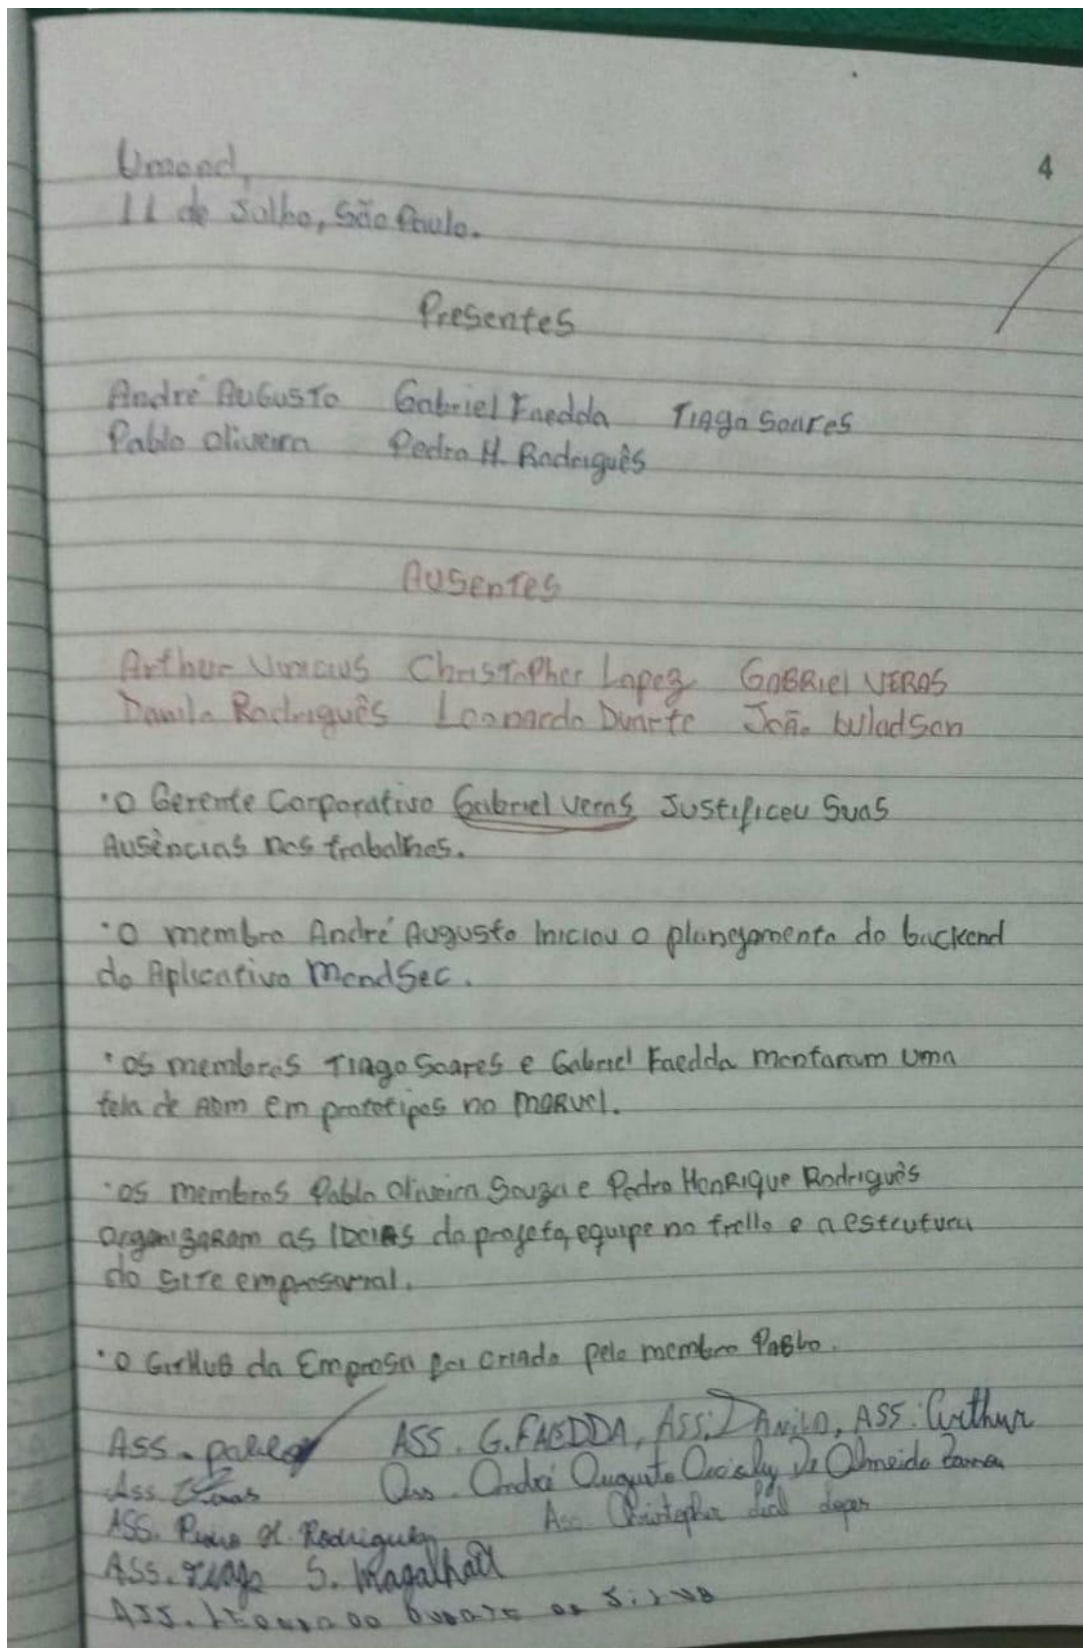 Umond,
4
11 de Julho, São Paulo.
Presentes
André AUGUSTO Gabriel Faedda TIAGO Soares
Pablo Oliveira Pedro H. Rodriguês
AUSENTES
Arthur Vinicius Christopher Lopez GABRIEL VERAS
Danilo Rodriguês Leonardo Duarte João Wladson
• O Gerente Corporativo Gabriel Veras Justificou Suas
Ausências nos trabalhos.
• O membro André Augusto Iniciou o planejamento do backend
do Aplicativo MondSec.
• Os membros Tiago Soares e Gabriel Faedda montaram uma
tela de ADM em prototipos no MARVEL.
• Os membros Pablo Oliveira Souza e Pedro Henrique Rodriguês
Organizaram as IDEIAS do projeto, equipe no trello e a estrutura
do site empresarial.
• O GitHub da Empresa foi criado pelo membro Pablo.
ASS. Pablo ASS. G. FAEDDA, ASS: Danilo, ASS: Arthur
Ass. Veras Ass. André Augusto De Almeida
ASS. Pedro H. Rodrigues Ass. Christopher Lopes
ASS. Tiago S. Magalhães
ASS. LEONARDO DUARTE DA SILVA